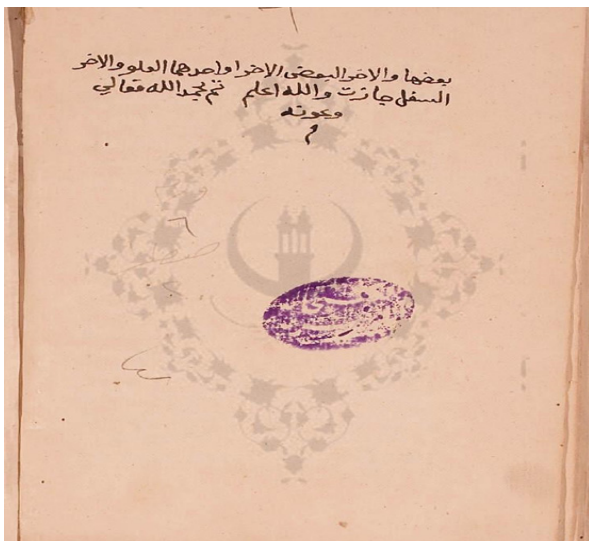 بعضها والاخر البعض الاخر او احدهما العلو والاخر
السفل جازت والله اعلم تم بحمد الله تعالي
وعونه
م